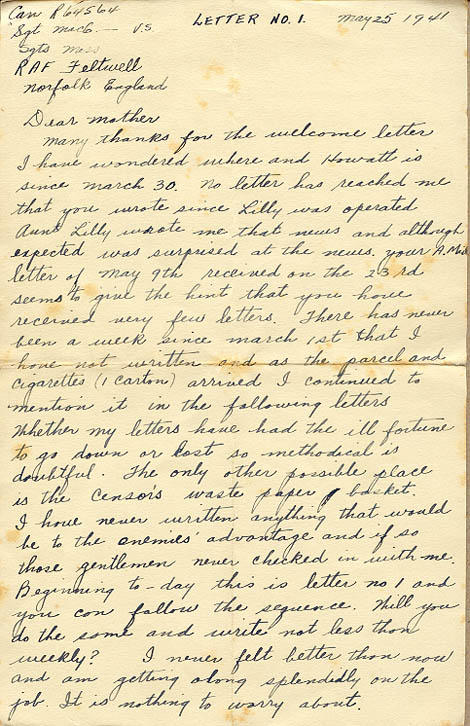 Can R64564 LETTER NO. 1. May 25 1941
Sgt McG. — V.S.
Sgts Mess
RAF Feltwell
Norfolk England
Dear Mother
Many thanks for the welcome letter
I have wondered where and Howatt is
since March 30. No letter has reached me
that you wrote since Lilly was operated
Aunt Lilly wrote me that news and although
expected was surprised at the news. Your A. Mail
letter of May 9th received on the 23rd
seems to give the hint that you have
received very few letters. There has never
been a week since March 1st that I
have not written and as the parcel and
cigarettes (1 carton) arrived I continued to
mention it in the following letters
Whether my letters have had the ill fortune
to go down or lost so methodical is
doubtful. The only other possible place
is the Censor's waste paper basket.
I have never written anything that would
be to the enemies' advantage and if so
those gentlemen never checked in with me.
Beginning to-day this is letter no 1 and
you can follow the sequence. Will you
do the same and write not less than
weekly? I never felt better than now
and am getting along splendidly on the
job. It is nothing to worry about.